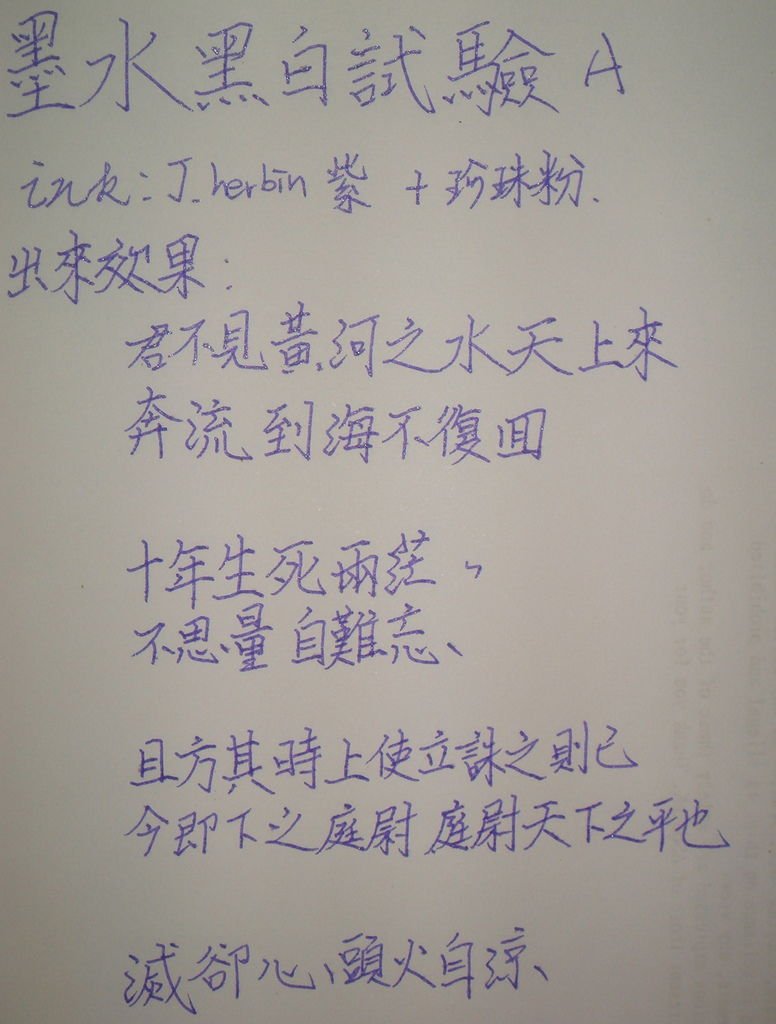 墨水黑白試驗 A
ink: J. herbin 紫 + 珍珠粉.
出來效果:
君不見黃河之水天上來
奔流到海不復回
十年生死兩茫,
不思量自難忘、
且方其時上使立誅之則已
今即下之庭尉 庭尉天下之平也
滅卻心頭火自涼、